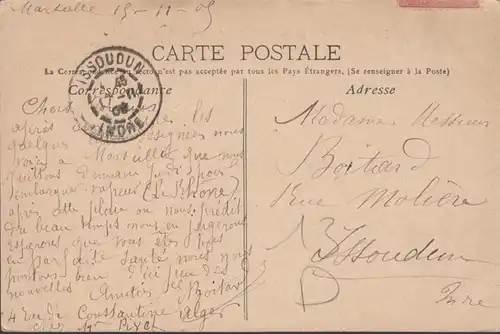 Marseille 15-11-05
CARTE POSTALE
La Correspondance au recto n'est pas acceptée par tous les Pays Étrangers, (Se renseigner à la Poste)
Correspondance
Adresse
ISSOUDUN
INDRE
Chers
après les
quelques nous
voici à Marseille que nous
quittons Demain jeudi pour
s'embarquer vapeur (Le Rhône)
après cette pluie on nous prédit
du beau temps nous en jugerons
Esperons que vous êtes tous
en parfaite santé nous nous
portons bien d'ici peu des
nouvelles
Amitiés Boitard
4 Rue de Constantine Alger
chez Mr
Madame Messieurs
Boitard
Rue Molière
13
Issoudun
Indre